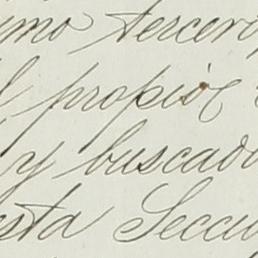 imo tercero,
l propio
y buscado
esta Secci